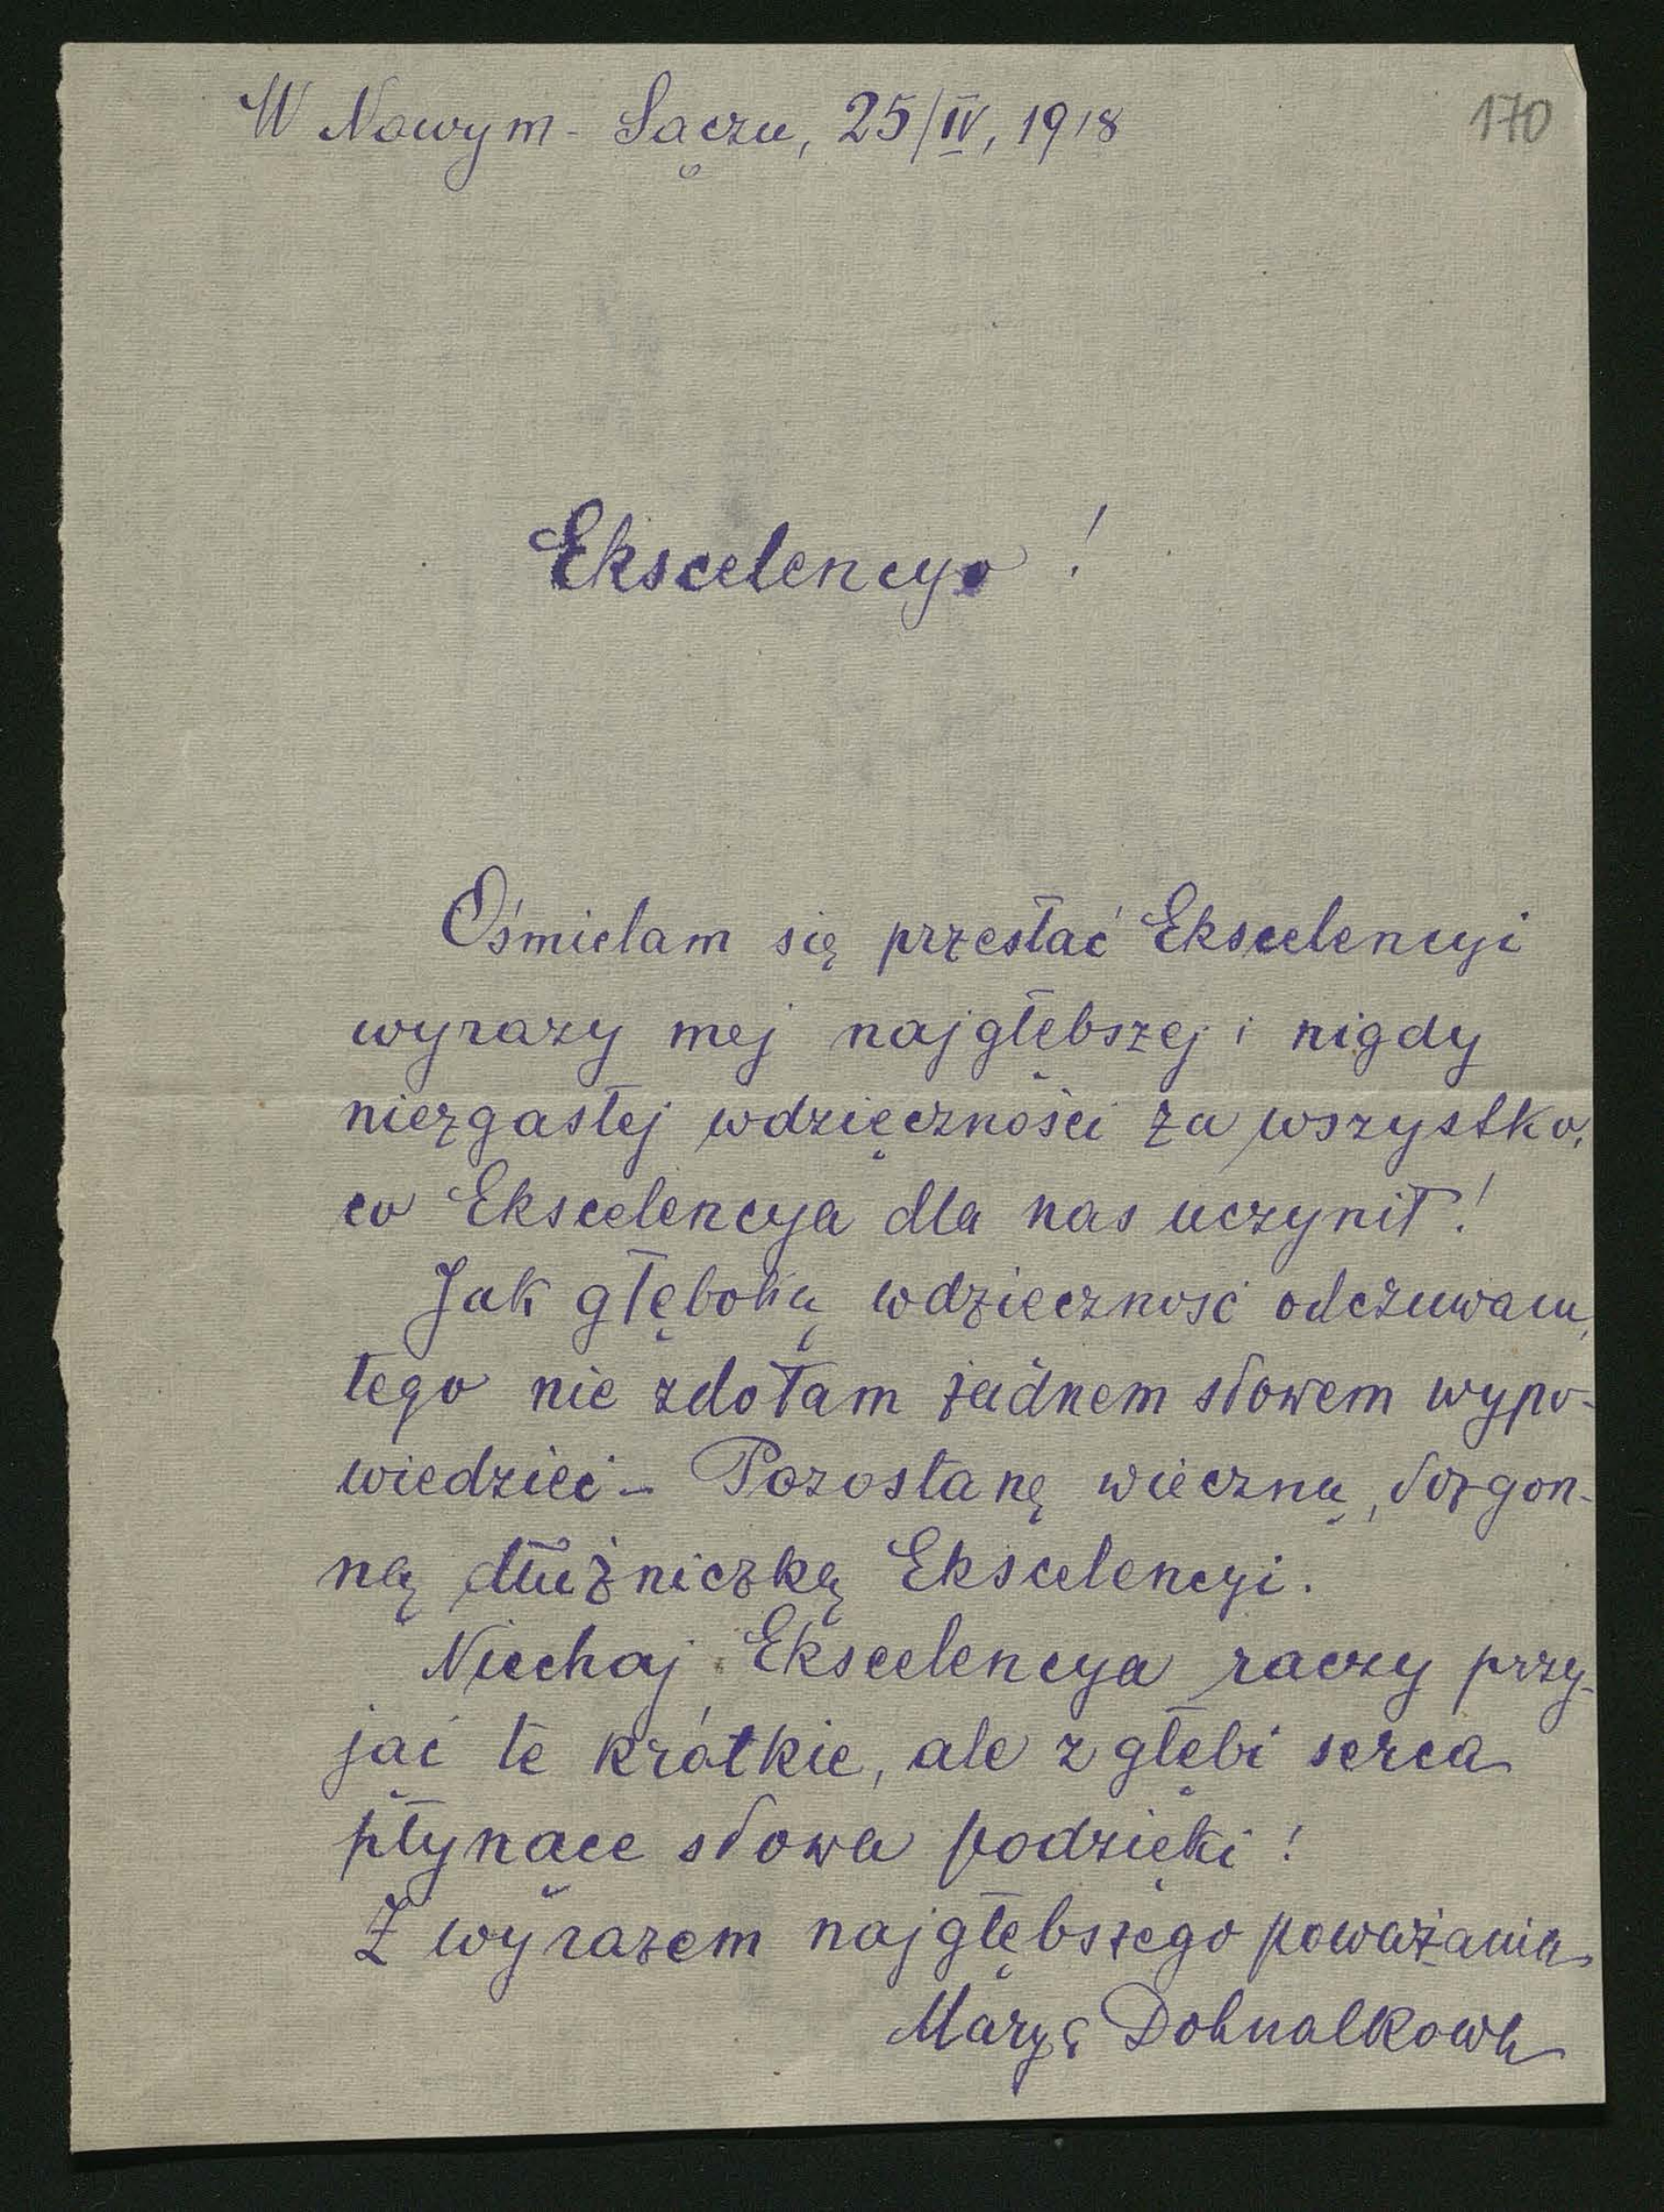 W Nowym-Sączu, 25/IV, 1918
170
Ekscelencyo!
Ośmielam się przesłać Ekscelencyi
wyrazy mej najgłębszej i nigdy
niezgasłej wdzięczności za wszystko,
co Ekscelencya dla nas uczynił!
Jak głęboką wdzięczność odczuwam,
tego nie zdołam żadnem słowem wypo-
wiedzieć - Pozostanę wieczną, dozgon-
ną dłużniczką Ekscelencyi.
Niechaj Ekscelencya raczy przy-
jąć te krótkie, ale z głębi serca
płynące słowa podzięki!
Z wyrazem najgłębszego poważania
Marya Dohnalkowa